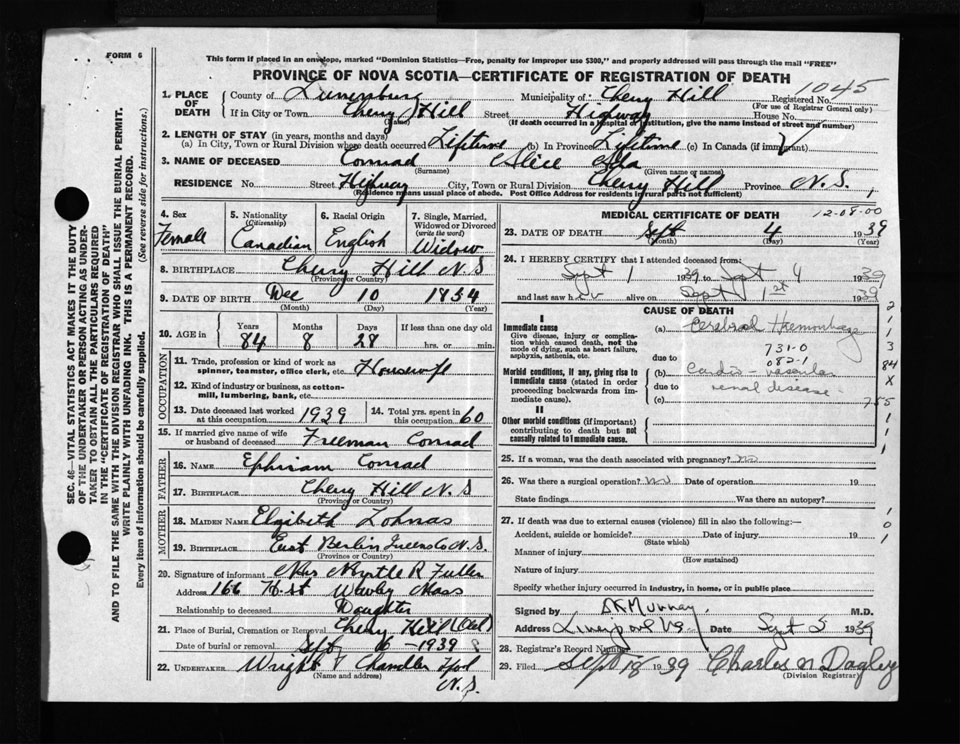 FORM 6
This form if placed in an envelope, marked "Dominion Statistics—Free, penalty for improper use $300," and properly addressed will pass through the mail "FREE"
PROVINCE OF NOVA SCOTIA—CERTIFICATE OF REGISTRATION OF DEATH
1045
1. PLACE OF DEATH
County of Lunenburg Municipality of Cherry Hill Registered No.
(For use of Registrar General only)
If in City or Town Cherry Hill Street Highway House No.
(Name) (If death occurred in a hospital or institution, give the name instead of street and number)
2. LENGTH OF STAY (in years, months and days)
(a) In City, Town or Rural Division where death occurred Lifetime (b) In Province Lifetime (c) In Canada (if immigrant)
3. NAME OF DECEASED Conrad Alice Ada
(Surname) (Given name or names)
RESIDENCE No. Street Highway City, Town or Rural Division Cherry Hill Province N.S.
(Residence means usual place of abode. Post Office Address for residents in rural parts not sufficient)
4. Sex Female
5. Nationality (Citizenship) Canadian
6. Racial Origin English
7. Single, Married, Widowed or Divorced (write the word) Widow
8. BIRTHPLACE Cherry Hill N.S
(Province or Country)
9. DATE OF BIRTH Dec 10 1854
(Month) (Day) (Year)
10. AGE in Years Months Days If less than one day old
84 8 28 hrs. or min.
OCCUPATION
11. Trade, profession or kind of work as spinner, teamster, office clerk, etc. Housewife
12. Kind of industry or business, as cotton-mill, lumbering, bank, etc.
13. Date deceased last worked at this occupation 1939
14. Total yrs. spent in this occupation 60
15. If married give name of wife or husband of deceased Freeman Conrad
FATHER
16. NAME Ephriam Conrad
17. BIRTHPLACE Cherry Hill N.S
(Province or Country)
MOTHER
18. MAIDEN NAME Elzibith Zohnas
19. BIRTHPLACE East Berlin Queens Co N.S.
(Province or Country)
20. Signature of informant Mrs Myrtle R Fuller
Address 166 St Waverly Mass
Relationship to deceased Daughter
21. Place of Burial, Cremation or Removal Cherry Hill
Date of burial or removal Sept 6 - 1939
22. UNDERTAKER Wright Chandler
(Name and address) N.S.
MEDICAL CERTIFICATE OF DEATH
12-08-00
23. DATE OF DEATH Sept 4 1939
(Month) (Day) (Year)
24. I HEREBY CERTIFY that I attended deceased from:
Sept 1 1939 to Sept 4 1939
and last saw her alive on Sept 1st 1939
CAUSE OF DEATH
I
Immediate cause
Give disease, injury or complication which caused death, not the mode of dying, such as heart failure, asphyxia, asthenia, etc.
(a) Cerebral Haemorrhage
731-0
due to 082-1
Morbid conditions, if any, giving rise to immediate cause (stated in order proceeding backwards from immediate cause).
(b) Cardio-vascular
due to renal disease
(c)
II
Other morbid conditions (if important) contributing to death but not causally related to immediate cause.
2
1
1
3
84
X
1
1
1
25. If a woman, was the death associated with pregnancy? No
26. Was there a surgical operation? No Date of operation 19
State findings Was there an autopsy?
27. If death was due to external causes (violence) fill in also the following:—
Accident, suicide or homicide? Date of injury 19
(State which)
Manner of injury
(How sustained)
Nature of injury
Specify whether injury occurred in industry, in home, or in public place
1
0
1
Signed by Murray M.D.
Address Liverpool NS Date Sept 5 1939
28. Registrar's Record Number
29. Filed Sept 18 1939 Charles N Dagley
(Division Registrar)
SEC. 46—VITAL STATISTICS ACT MAKES IT THE DUTY OF THE UNDERTAKER OR PERSON ACTING AS UNDERTAKER TO OBTAIN ALL THE PARTICULARS REQUIRED IN THE "CERTIFICATE OF REGISTRATION OF DEATH" AND TO FILE THE SAME WITH THE DIVISION REGISTRAR WHO SHALL ISSUE THE BURIAL PERMIT.
WRITE PLAINLY WITH UNFADING INK. THIS IS A PERMANENT RECORD.
Every item of information should be carefully supplied. (See reverse side for instructions.)